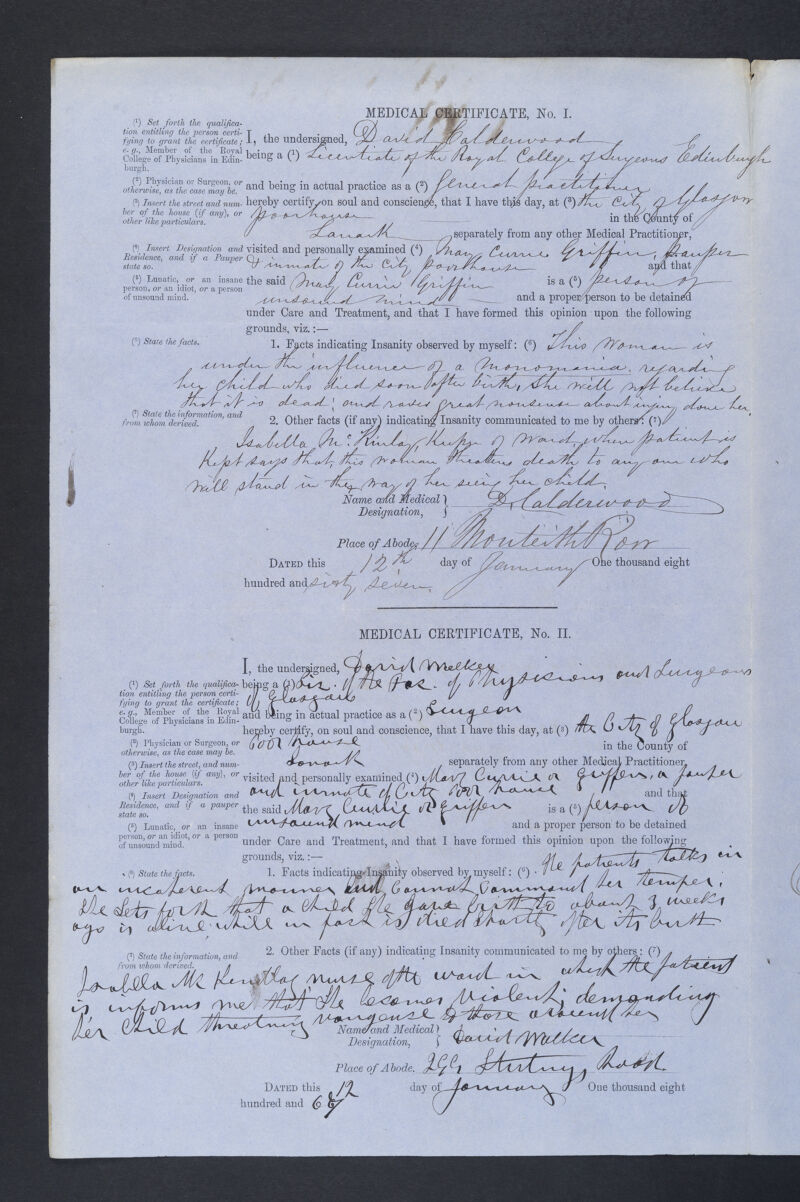 MEDICAL CERTIFICATE, No. I.
(¹) Set forth the qualifica-
tion entitling the person certi-
fying to grant the certificate;
e. g., Member of the Royal
College of Physicians in Edin-
burgh.
(²) Physician or Surgeon, or
otherwise, as the case may be.
(³) Insert the street and num-
ber of the house (if any), or
other like particulars.
(⁴) Insert Designation and
Residence, and if a Pauper
state so.
(⁵) Lunatic, or an insane
person, or an idiot, or a person
of unsound mind.
(⁶) State the facts.
(⁷) State the information, and
from whom derived.
I, the undersigned, David Calderwood
being a (¹) Licentiate of the Royal College of Surgeons Edinburgh
and being in actual practice as a (²) General practitioner
hereby certify, on soul and conscience, that I have this day, at (³) the City of Glasgow
poorhouse in the County of
Lanark separately from any other Medical Practitioner,
visited and personally examined (⁴) Mary Currie Griffin, Pauper
& inmate of the City poorhouse and that
the said Mary Currie Griffin is a (⁵) person of
unsound mind and a proper person to be detained
under Care and Treatment, and that I have formed this opinion upon the following
grounds, viz.:—
1. Facts indicating Insanity observed by myself: (⁶) This Woman is
under the influence of a monomania regarding
her child who died soon after birth, She will not believe
that it is dead; and raves great nonsense about injury done her.
2. Other facts (if any) indicating Insanity communicated to me by others: (⁷)
Isabella McKinlay, Keeper of Ward, where patient is
Kept says that this woman threatens death to any one who
will stand in the way of her seeing her child.
Name and Medical Designation, D. Calderwood
Place of Abode, 11 Monteith Row
DATED this 12th day of January One thousand eight
hundred and sixty seven.
MEDICAL CERTIFICATE, No. II.
(¹) Set forth the qualifica-
tion entitling the person certi-
fying to grant the certificate;
e. g., Member of the Royal
College of Physicians in Edin-
burgh.
(²) Physician or Surgeon, or
otherwise, as the case may be.
(³) Insert the street, and num-
ber of the house (if any), or
other like particulars.
(⁴) Insert Designation and
Residence, and if a pauper
state so.
(⁵) Lunatic, or an insane
person, or an idiot, or a person
of unsound mind.
(⁶) State the facts.
(⁷) State the information, and
from whom derived.
I, the undersigned, David Walker
being a (¹) Lic. of the Fac. of Physicians and Surgeons
of Glasgow
and being in actual practice as a (²) Surgeon
hereby certify, on soul and conscience, that I have this day, at (³) the City of Glasgow
Poor house in the County of
Lanark separately from any other Medical Practitioner,
visited and personally examined (⁴) Mary Currie or Griffen, a pauper
and inmate of City Poor house and that
the said Mary Currie or Griffen is a (⁵) person of
unsound mind and a proper person to be detained
under Care and Treatment, and that I have formed this opinion upon the following
grounds, viz.:—
1. Facts indicating Insanity observed by myself: (⁶) The patients talks in
an incoherent manner and Cannot Command her temper.
She Sets forth that a child She gave birth to about 3 weeks
ago is alive while in fact is died shortly after its birth
2. Other Facts (if any) indicating Insanity communicated to me by others: (⁷)
Isabella Mc Kinlay nurse of the ward in which the patient
is informs me that She becomes violent; demanding
her child threatning vengense to those around her
Name and Medical Designation, David Walker
Place of Abode, Stirling Road
DATED this 12 day of January One thousand eight
hundred and 67